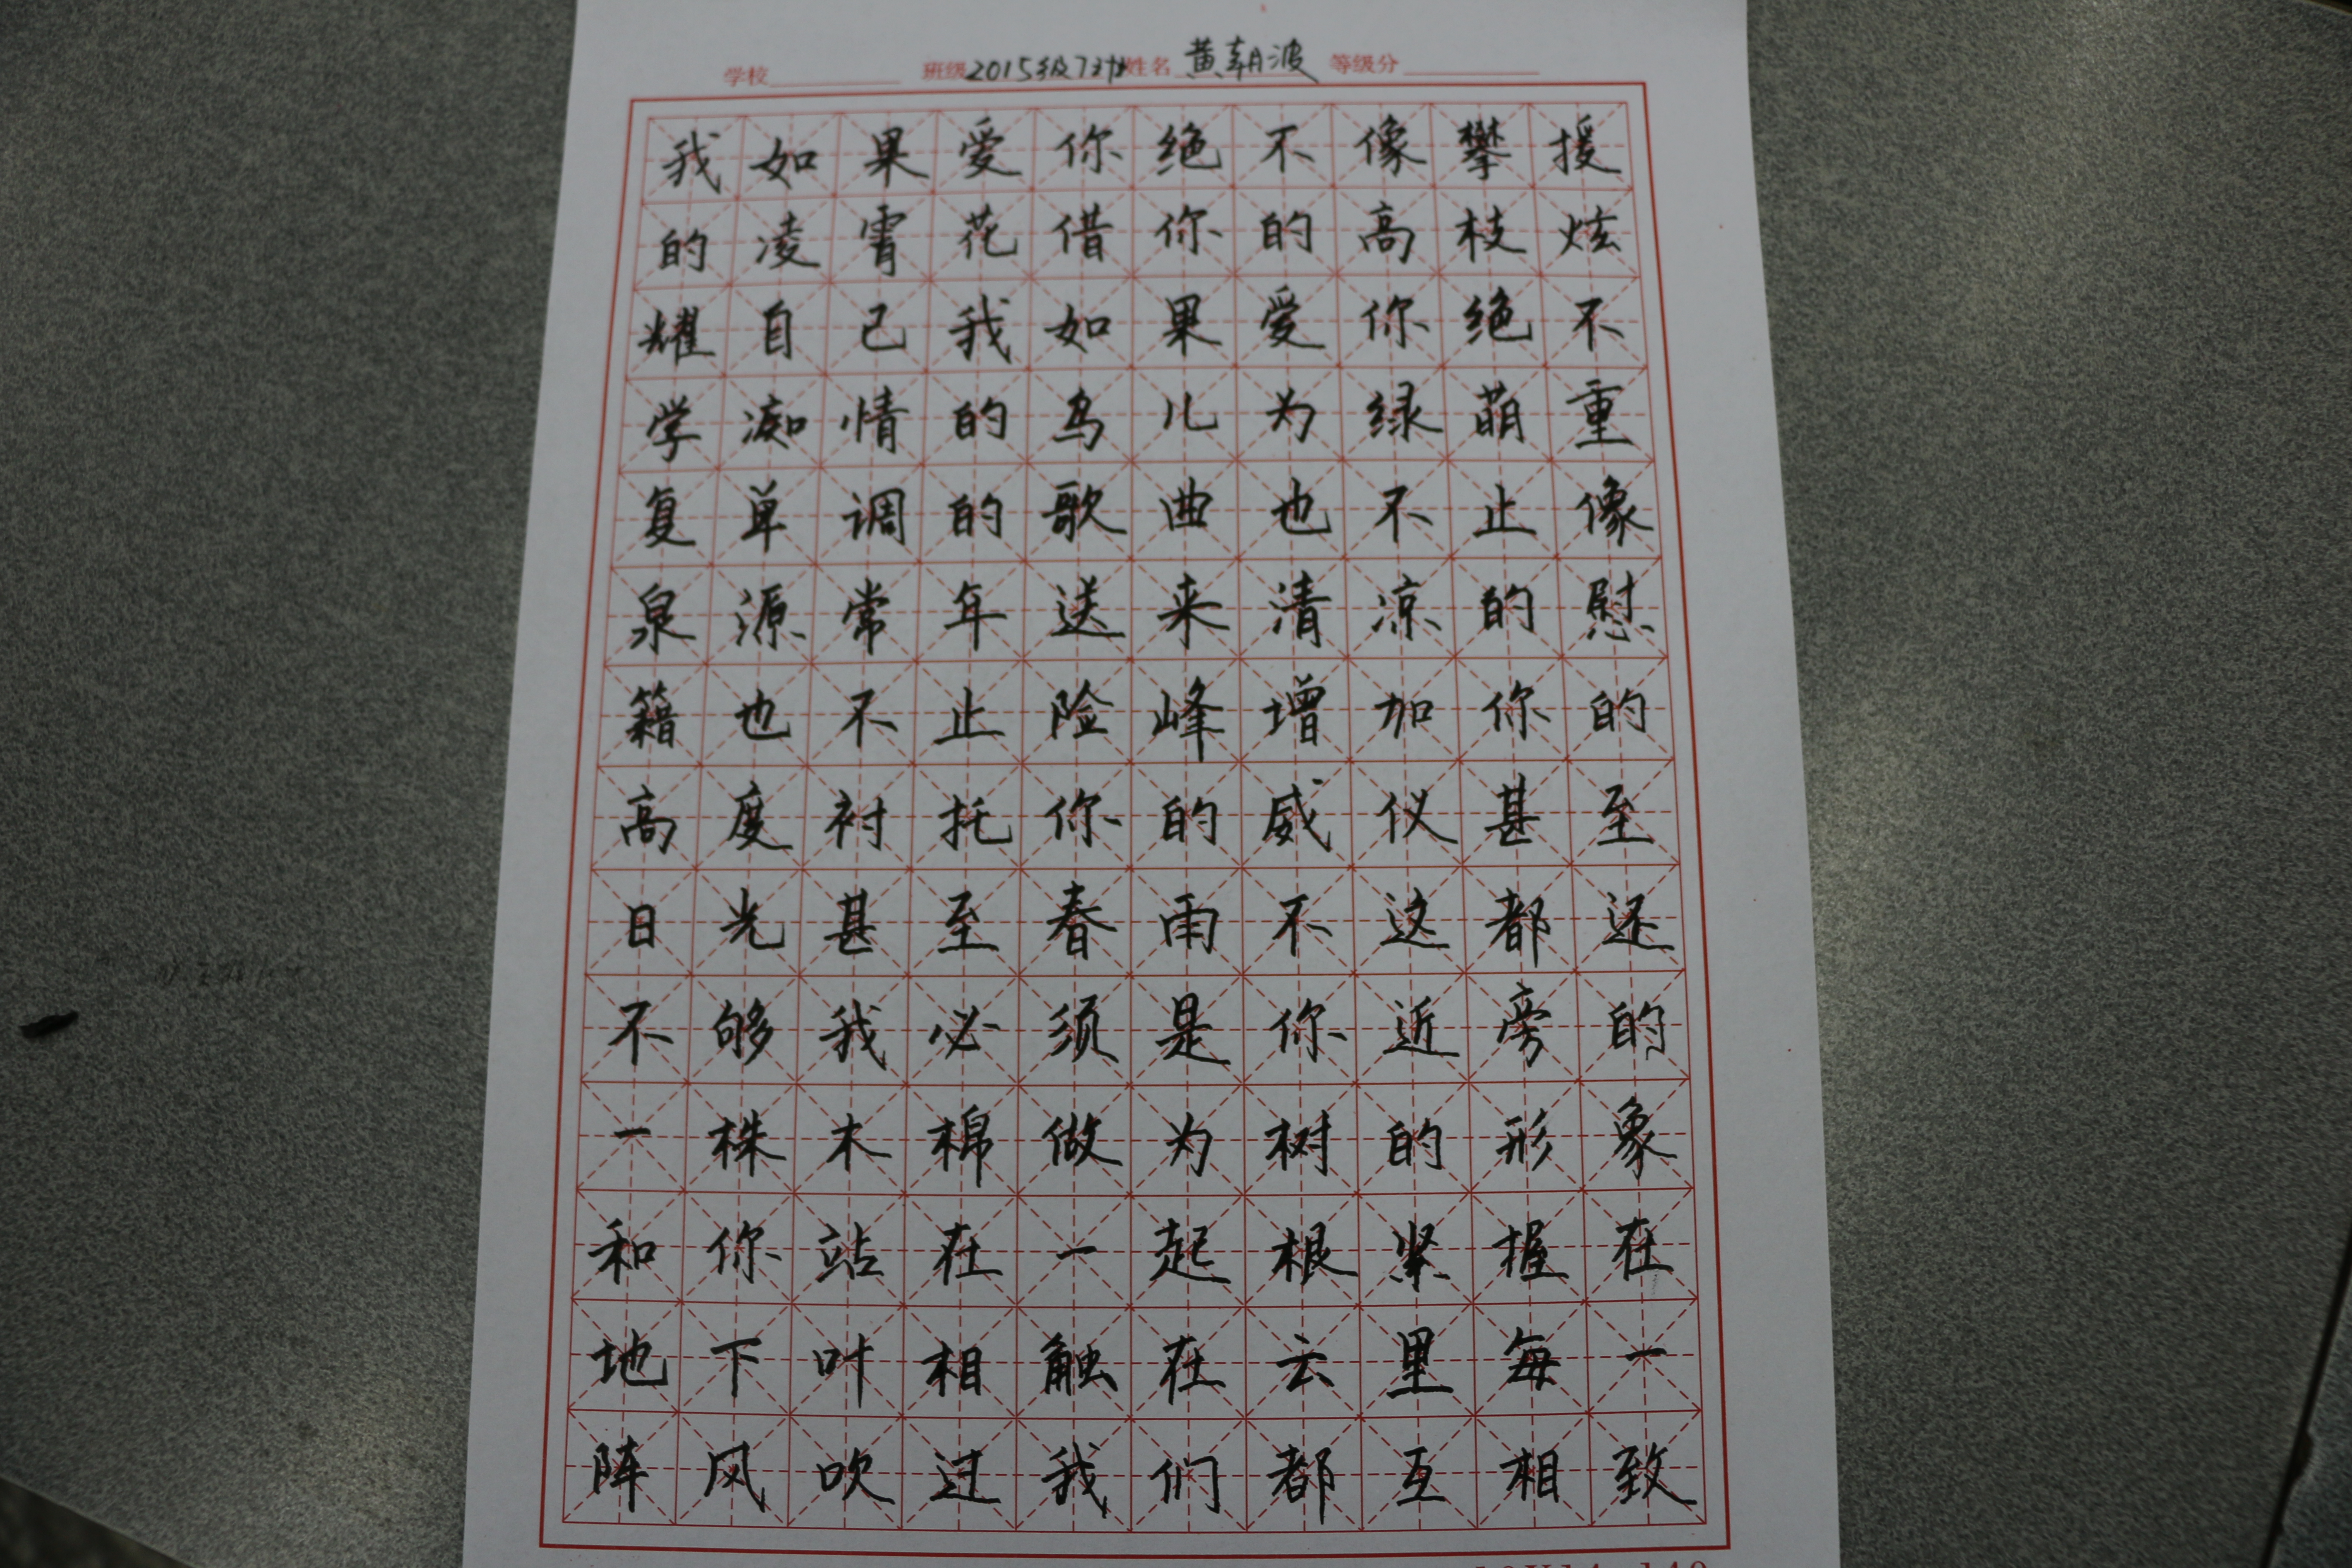 学校 班级 2015级7班 姓名 黄朝波 等级分
我如果爱你绝不像攀援
的凌霄花借你的高枝炫
耀自己我如果爱你绝不
学痴情的鸟儿为绿萌重
复单调的歌曲也不止像
泉源常年送来清凉的慰
籍也不止险峰增加你的
高度衬托你的威仪甚至
日光甚至春雨不这都还
不够我必须是你近旁的
一株木棉做为树的形象
和你站在一起根紧握在
地下叶相触在云里每一
阵风吹过我们都互相致